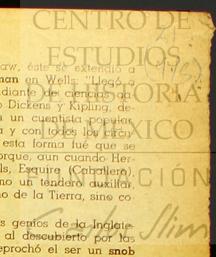 CENTRO DE
ESTUDIOS
DE HISTORIA
DE MÉXICO
FUNDACIÓN
Carlos Slim
aw, éste se extendió a
man en Wells: "Llegó a
diante de ciencias
o Dickens y Kipling, de-
s un cuentista popular
a y con todos los
esta forma fué que se
orque, aun cuando Her-
ls, Esquire (Caballero),
no un tendero auxiliar
no de la Tierra, sino co-
s genios de la Inglate-
al descubierto por las
eprochó el ser un snob